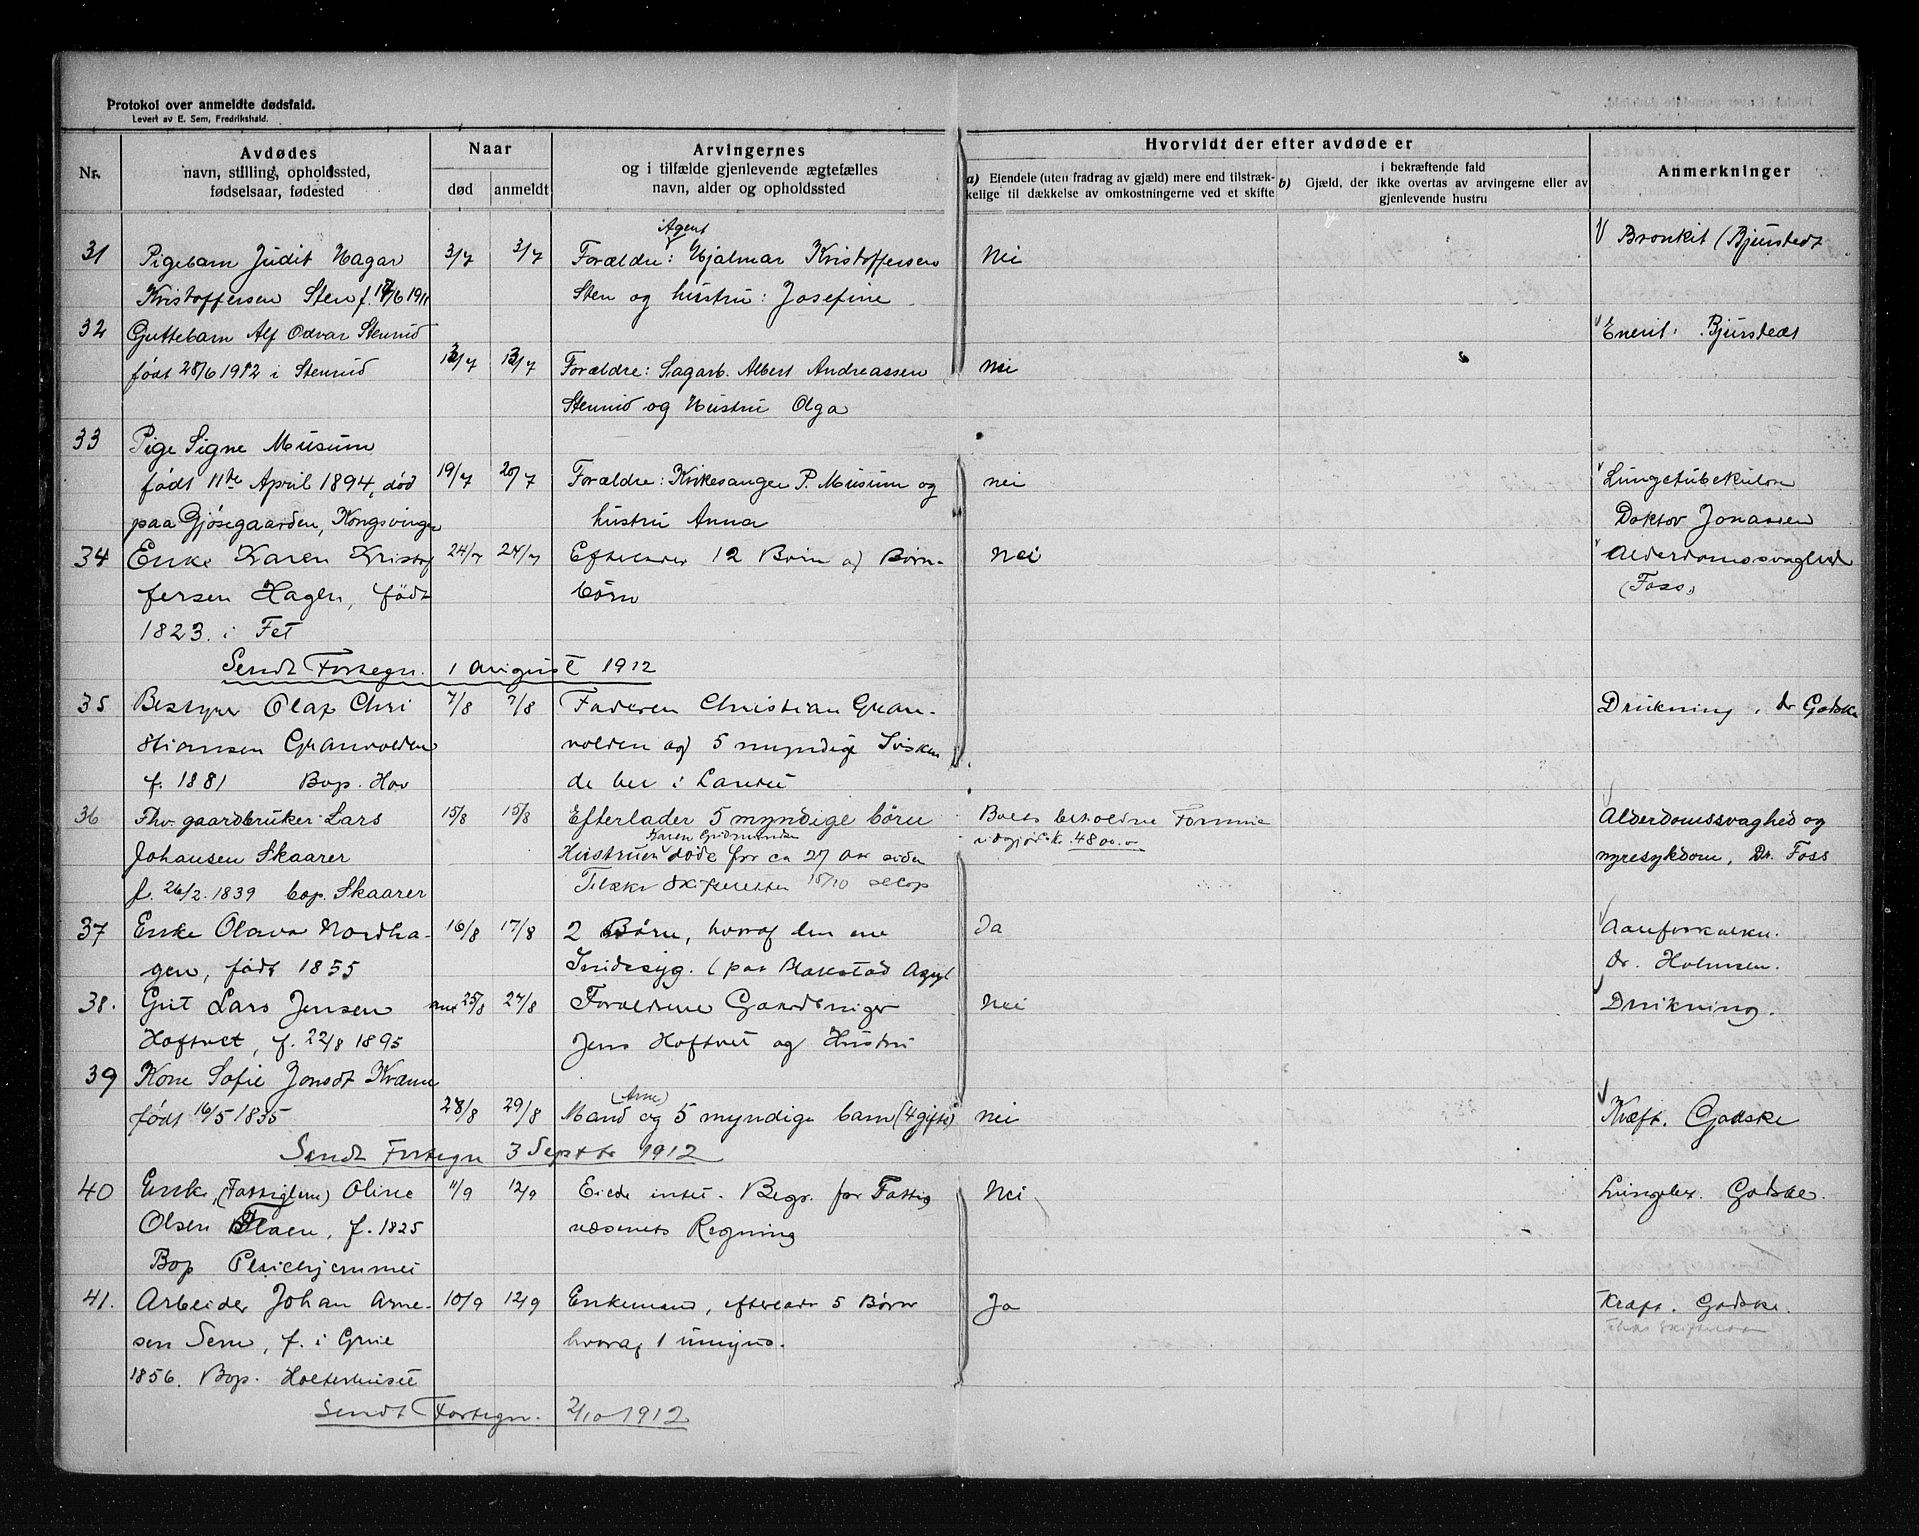 Protokol over anmeldte dødsfald.
Levert av E. Sem, Fredrikshald.
Nr.
Avdødes
navn, stilling, opholdssted,
fødselsaar, fødested
Naar
død
anmeldt
Arvingernes
og i tilfælde gjenlevende ægtefælles
navn, alder og opholdssted
Hvorvidt der efter avdøde er
a) Eiendele (uten fradrag av gjæld) mere end tilstræk-
kelige til dækkelse av omkostningerne ved et skifte
b) Gjæld, der i bekræftende fald
ikke overtas av arvingerne eller av
gjenlevende hustru
Anmerkninger
31 Pigebarn Judit Hagar 3/7 3/7 Forældre: Agent Hjalmar Kristoffersen Nei Bronkit (Bjurstedt
Kristoffersen Sten f. 17/6 1911 Sten og hustru: Josefine
32 Guttebarn Alf Odvar Stenrud Enerit. Bjurstedt
født 28/6 1912 i Stenrud 13/7 13/7 Forældre: Sagarb. Albert Andreassen nei
Stenrud og Hustru Olga
33 Pige Signe Musum
født 11te April 1894, død 19/7 20/7 Forældre: Kirkesanger P. Musum og nei Lungetuberkulose
paa Gjøsegaarden, Kongsvinger hustru Anna Doktor Jonassen
34 Enke Karen Kristof 24/7 24/7 Efterlader 12 Børn og Børne- Nei Alderdomssvaghed
fersen Hagen, født børn (Foss)
1823. i Fet
Sendt Fortegn. 1 august 1912
35 Bestyrer Olaf Chri 7/8 7/8 Faderen Christian Gran- Drukning, dr Godske
stiansen Granvolden volden og 5 myndige Søsken
f. 1881 Bop. Hov de her i Landet
36 Fhv. gaardbruker Lars 15/8 15/8 Efterlader 5 myndige børn Boets beholdne Formue Alderdomssvaghed og
Johansen Skaarer Hustruen Karen Gudmundsen døde for ca 27 aar siden utgjør k. 4800.00 nyresykdom, Dr. Foss
f. 26/2. 1839 bop. Skaarer Tilækr Skifteretten 15/10
37 Enke Olava Nordha- 16/8 17/8 2 Børn, hvoraf den ene Ja Aareforkalkn.
gen, født 1855 Sindssyg. (paa Blakestad Asyl dr. Holmsen.
38. Gut Lars Jensen 25/8 27/8 Forældrene Gaardbruger Nei Drukning.
Hoftvet, f. 22/8 1895 Jens Hoftvet og Hustru
39 Kone Sofie Jonsdt
født 16/5 1835 28/8 29/8 Mand (Arne) og 5 myndige barn (4 gifte) nei Kræft. Godske
Sendt Fortegn 3 Septbr 1912
40 Enke, (Fattiglem) Oline 11/9 12/9 Eiede intet. Begr. for Fattig Nei Lungebet. Godske.
Olsen, f. 1825 væsenets Regning
Bop Pleiehjemmet
41. Arbeider Johan Arne- 10/9 12/9 Enkemand, efterlader 5 Børn Ja Kræft. Godske.
sen Sem, f. i Grue hvoraf 1 umynd.
1856. Bop. Holterhuset
Sendt Fortegn. 2/10 1912